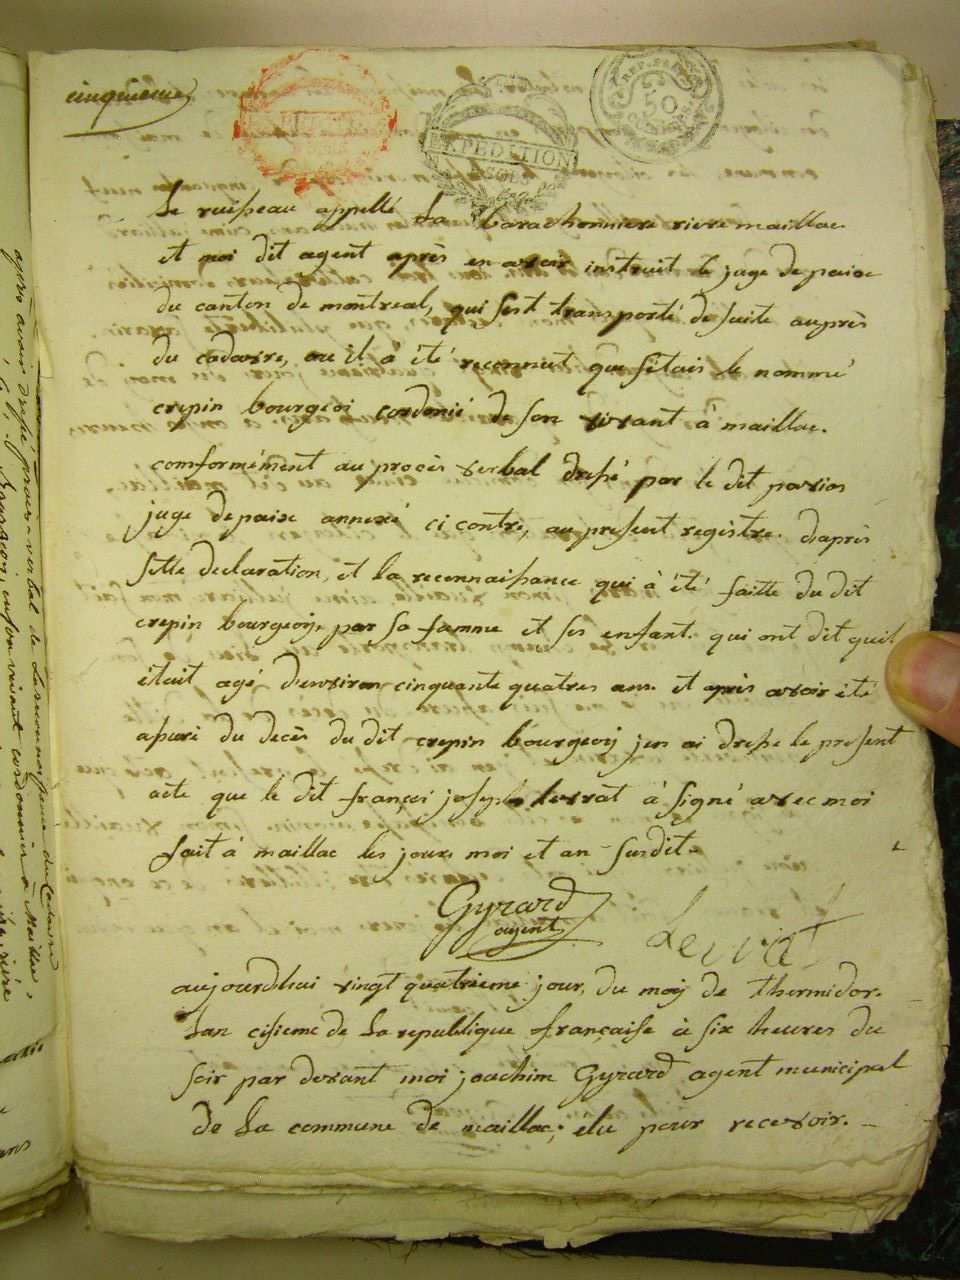 cinquieme
EXPEDITION
REP. FRA.
50
Le ruisseau appellé La barathonniere riere maillac
et moi dit agent après en avoir instruit le juge de paix
du canton de montreal, qui sest transporté de suite auprès
du cadavre, ou il à été reconnut que sétais le nommé
crepin bourgeoi cordonié de son vivant à maillac.
comformément au procès verbal dressé par le dit
juge de paix annexé ci contre, au present registre. daprès
sette declaration, et la reconnaissance qui à été faitte du dit
crepin bourgeoy, par sa famme et ses enfant. qui ont dit quil
était agé denviron cinquante quatres ans. et après avoir été
assuré du decès du dit crepin bourgeoy jen ai dressé le present
acte que le dit françoi joseph levrat à signé avec moi
fait à maillac les jours moi et an susdit.
Gyrard
agent
Levrat
aujourdhui vingt quatrieme jour, du moy de thermidor.
Lan cisieme de La republique française à six heures du
soir par devant moi joachim Gyrard agent municipal
de La commune de maillac, elu pour recevoir.
après avoir dressé procès verbal de La reconnoissance du Cadavre
Bourgeoi, en son vivant cordonnier à Maillac,